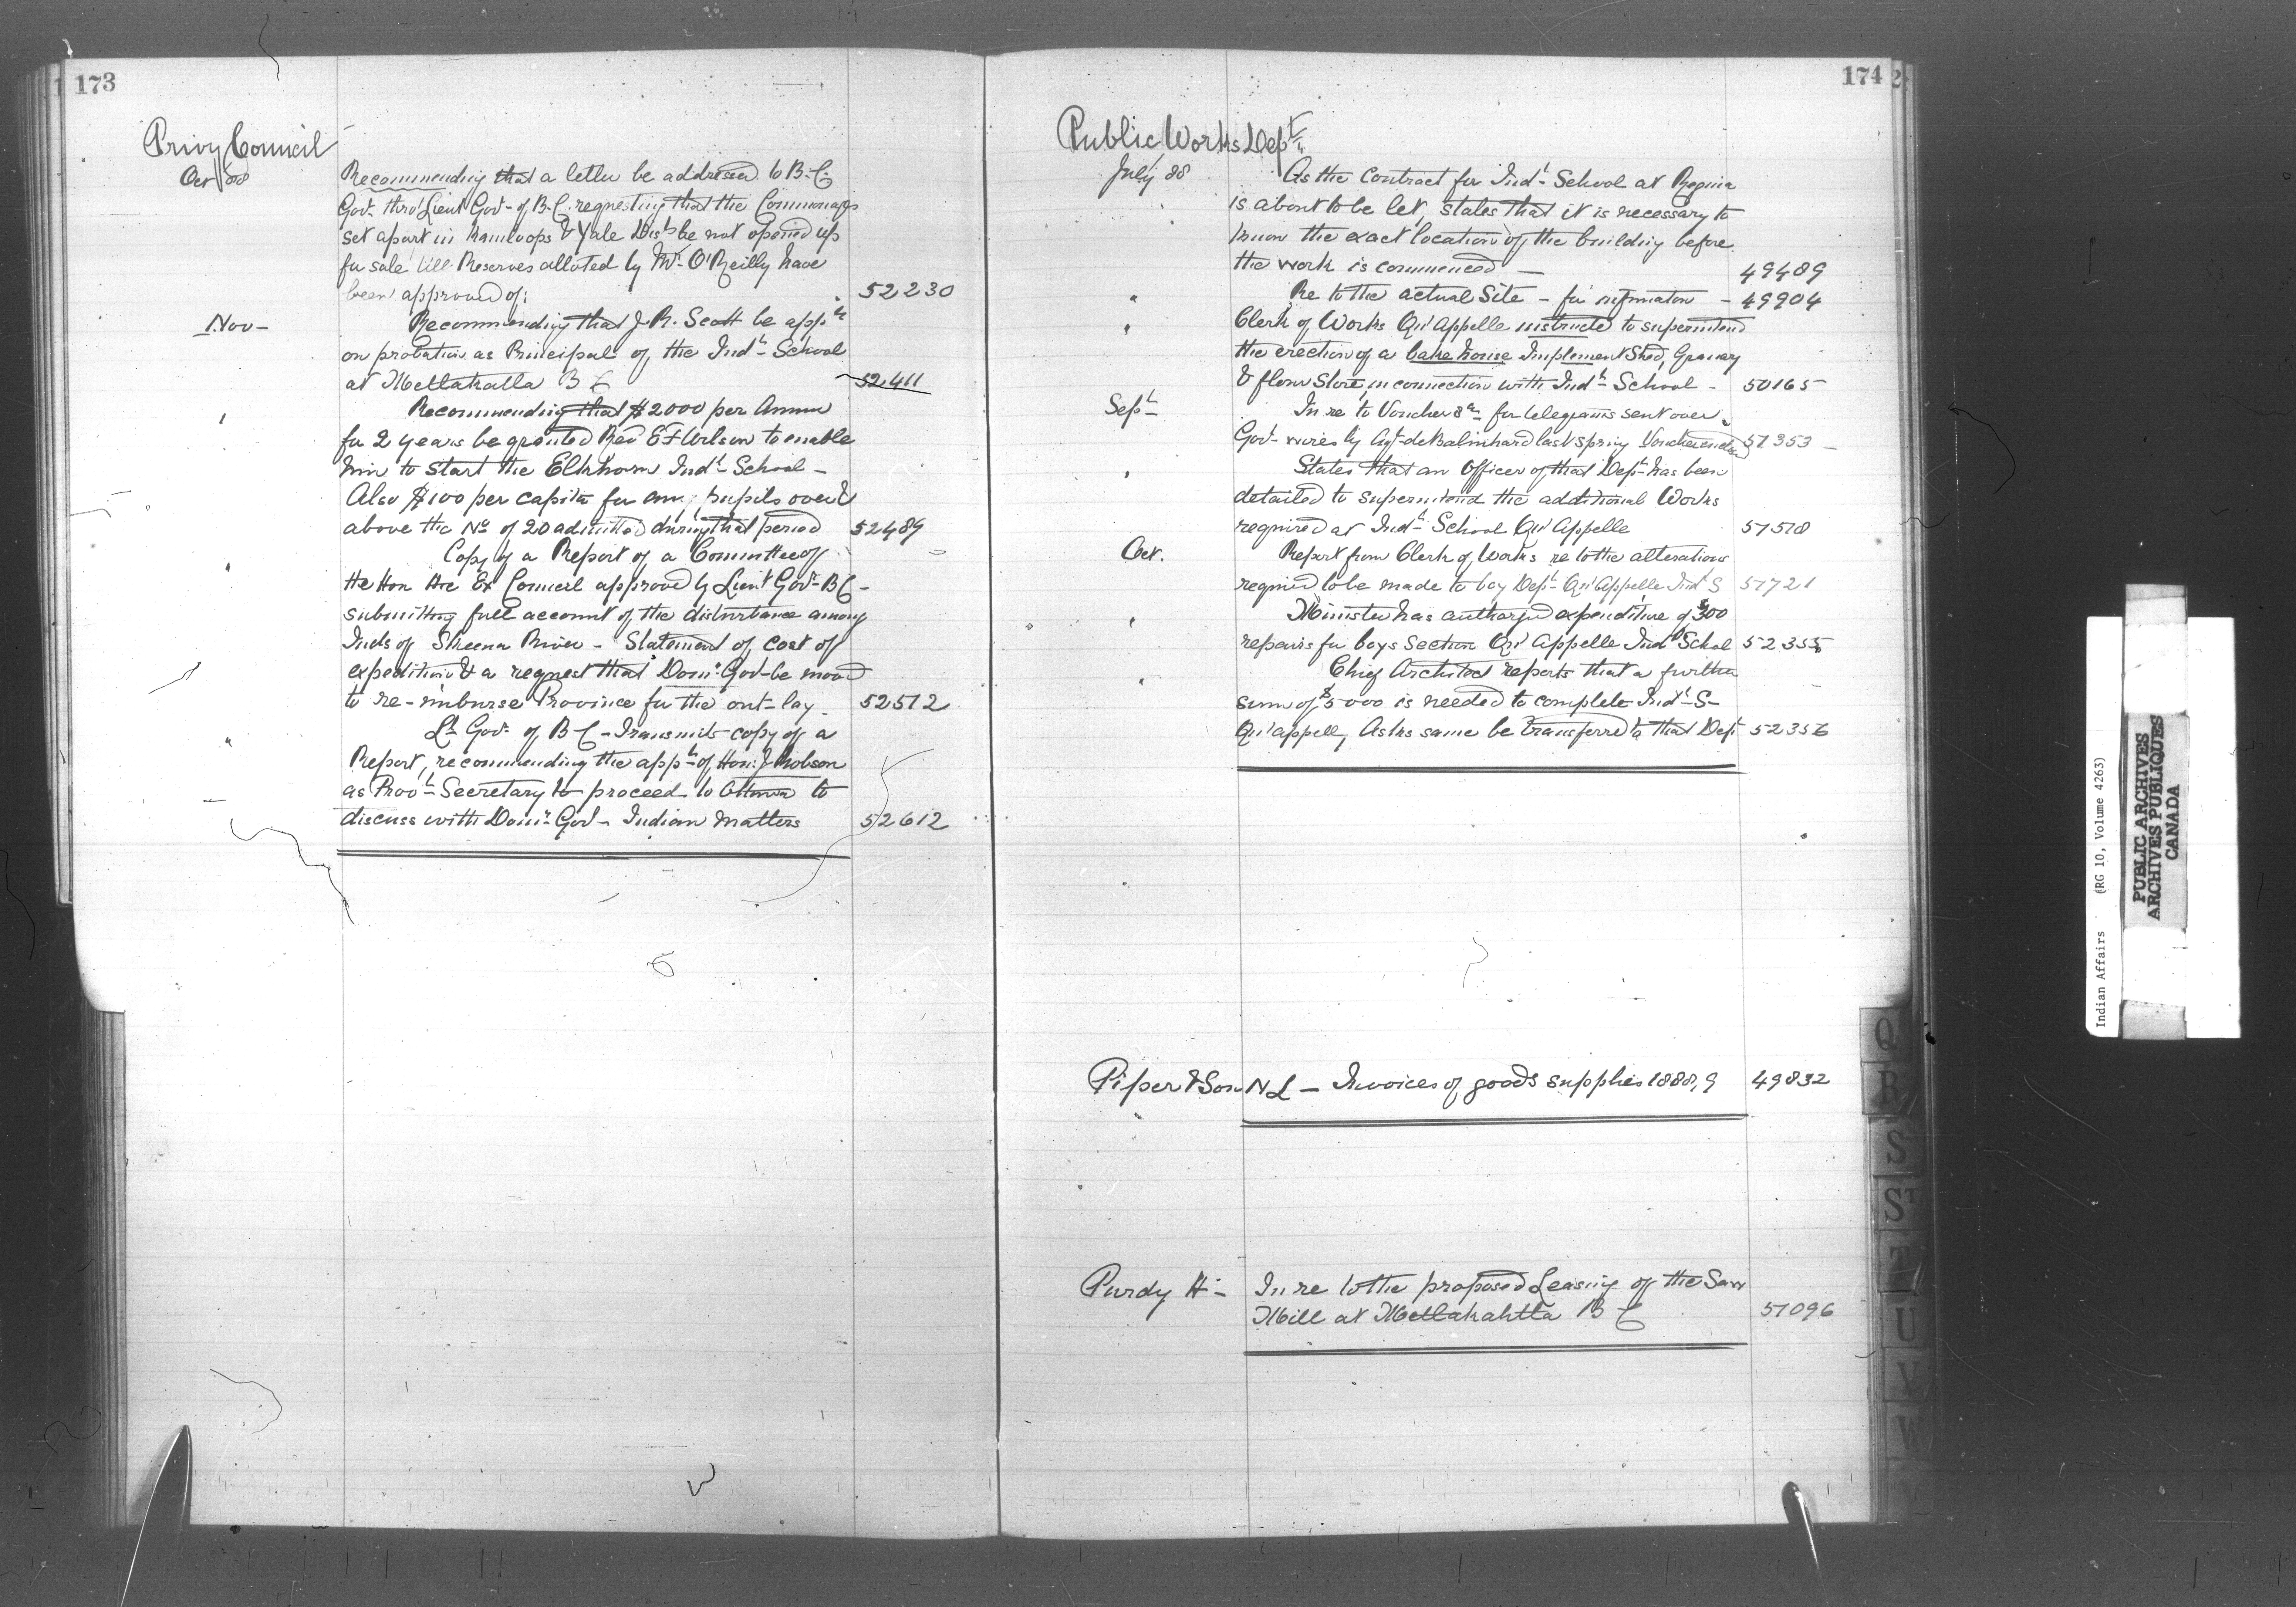 173
Privy Council
Oct 88
Recommending that a letter be addressed to B.C.
Govt. thro' Lieut Govr. of B.C. requesting that the Commonages
set apart in Kamloops & Yale Dists be not opened up
for sale till Reserves alloted by Mr. O'Reilly have
been approved of: 52230
Nov -
Recommending that J. R. Scott be appd
on probation as Principal of the Indl School
at Metlakatla B C 52411
" Recommending that $2000 per Annum
for 2 years be granted Rev E F Wilson to enable
him to start the Elkhorn Indl School -
Also $100 per capita for any pupils over &
above the No of 20 admitted during that period 52489
" Copy of a Report of a Committee of
the Hon the Ex Council approved by Lieut Govr B C -
submitting full account of the disturbance among
Inds of Skeena River - Statement of cost of
expedition & a request that Domn Govt be moved
to re-imburse Province for the out-lay - 52512
" Lt Govr of B C - Transmits copy of a
Report, recommending the appt of Hon: J Robson
as Provl Secretary to proceed to Ottawa to
discuss with Domn Govt - Indian matters 52612
174
Public Works Dept
July 88
As the contract for Indl School at Regina
is about to be let, states that it is necessary to
know the exact location of the building before
the work is commenced - 49489
" Re to the actual Site - for information - 49904
" Clerk of Works Qu'Appelle instructed to superintend
the erection of a bake house Implement Shed, Granary
& flour Store, in connection with Indl School - 50165
Sept
In re to Vouchers for telegrams sent over
Govt wires by Agt deBalinhard last spring 51353
" States that an Officer of that Dept has been
detailed to superintend the additional Works
required at Indl School Qu'Appelle 51518
Oct.
Report from Clerk of Works re to the alterations
required to be made to boy Dept Qu'Appelle Ind S 51721
" Minister has authorized expenditure of $300
repairs for boys Section Qu'Appelle Ind School 52355
" Chief Architect reports that a further
sum of $5000 is needed to complete Indl S-
Qu'appell, Asks same be transferred to that Dept 52356
Piper & Son N L - Invoices of goods supplies 1888,9 49832
Purdy H - In re to the proposed Leasing of the Saw
Mill at Metlakahtla B C 51096
Q
R
S
ST
T
U
V
W
Y
Indian Affairs (RG 10, Volume 4263)
PUBLIC ARCHIVES
ARCHIVES PUBLIQUES
CANADA